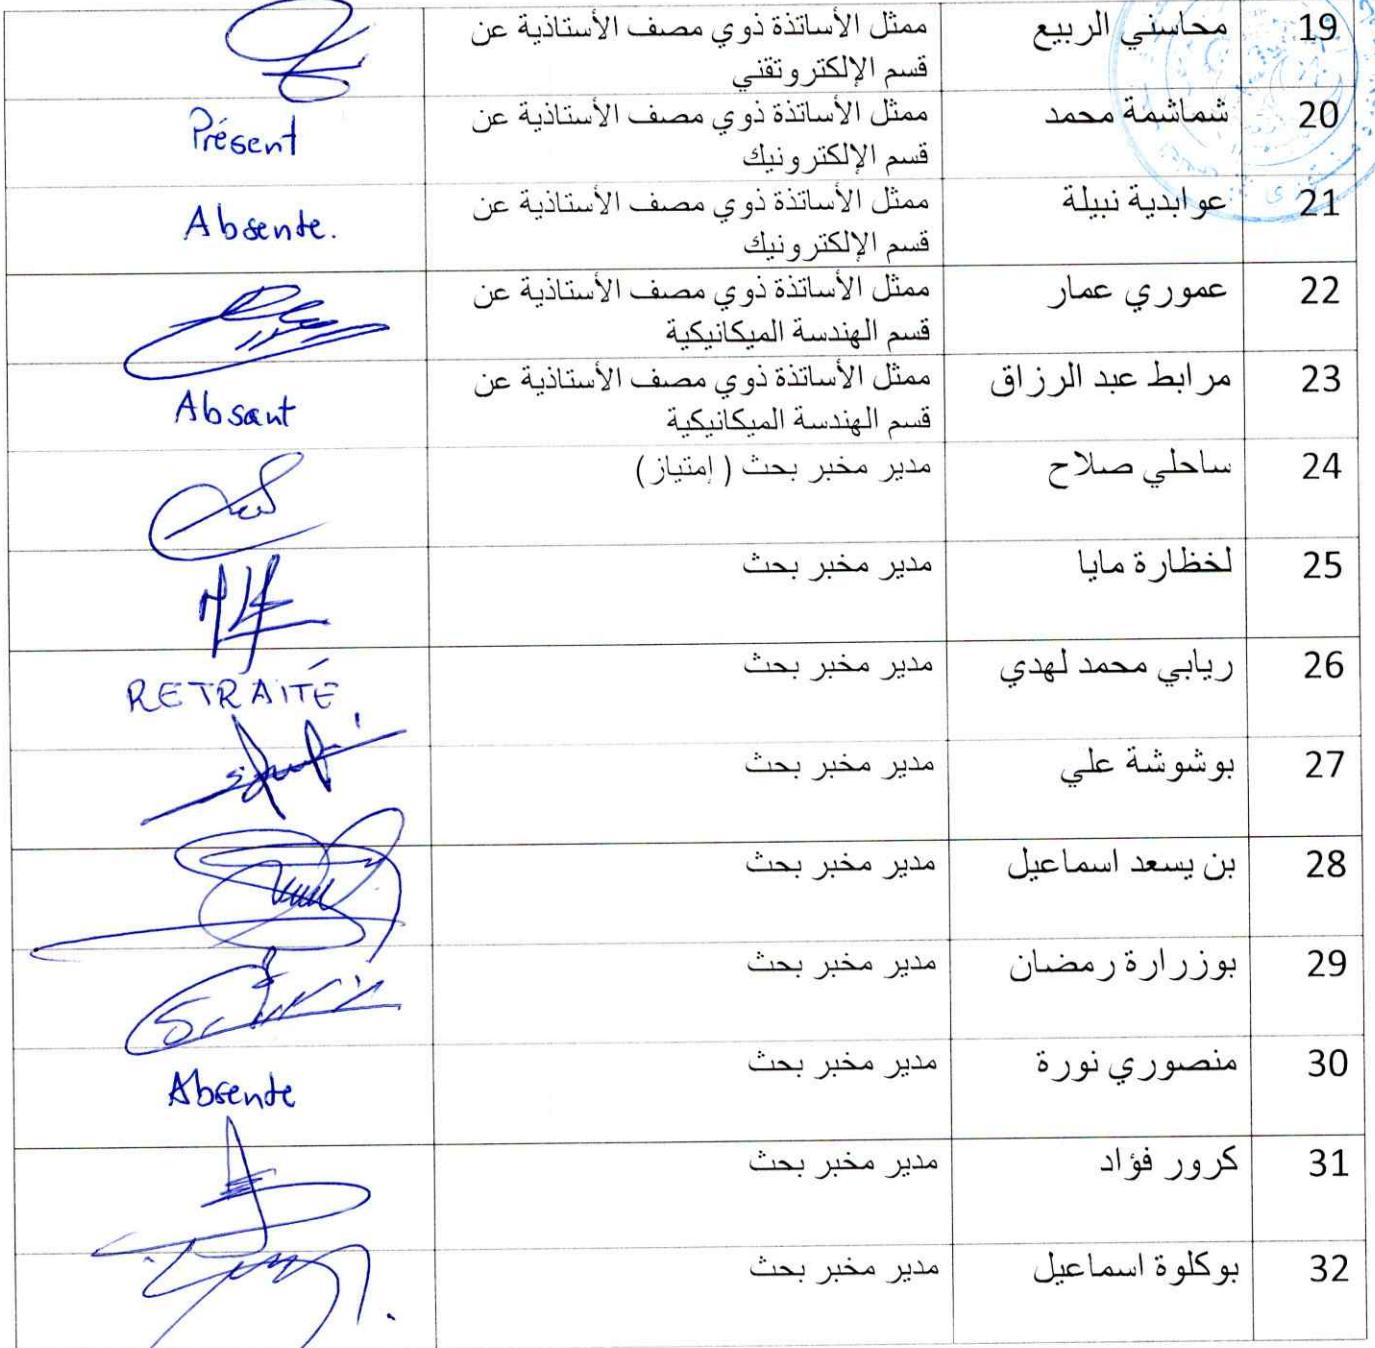 19 محاسني الربيع ممثل الأساتذة ذوي مصف الأستاذية عن
قسم الإلكتروتقني
20 شماشمة محمد ممثل الأساتذة ذوي مصف الأستاذية عن Présent
قسم الإلكترونيك
21 عوابدية نبيلة ممثل الأساتذة ذوي مصف الأستاذية عن Absente.
قسم الإلكترونيك
22 عموري عمار ممثل الأساتذة ذوي مصف الأستاذية عن
قسم الهندسة الميكانيكية
23 مرابط عبد الرزاق ممثل الأساتذة ذوي مصف الأستاذية عن Absant
قسم الهندسة الميكانيكية
24 ساحلي صلاح مدير مخبر بحث ( إمتياز)
25 لخظارة مايا مدير مخبر بحث
26 ريابي محمد لهدي مدير مخبر بحث RETRAITÉ
27 بوشوشة علي مدير مخبر بحث
28 بن يسعد اسماعيل مدير مخبر بحث
29 بوزرارة رمضان مدير مخبر بحث
30 منصوري نورة مدير مخبر بحث Absente
31 كرور فؤاد مدير مخبر بحث
32 بوكلوة اسماعيل مدير مخبر بحث